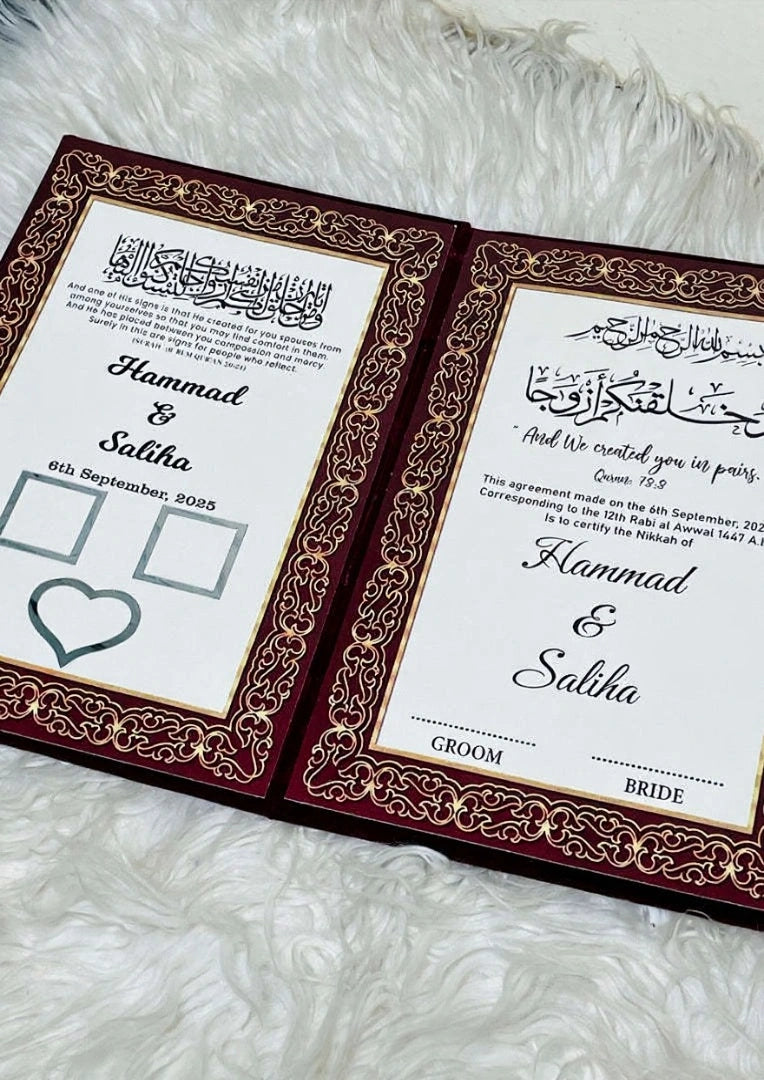 And one of His signs is that He created for you spouses from
among yourselves so that you may find comfort in them.
And He has placed between you compassion and mercy.
Surely in this are signs for people who reflect.
Hammad
&
Saliha
6th September, 2025
بسم الله الرحمن الرحيم
وخلقنكم أزوجا
" And We created you in pairs.
Quran: 78:8
This agreement made on the 6th September, 202
Corresponding to the 12th Rabi al Awwal 1447 A.H
Is to certify the Nikkah of
Hammad
&
Saliha
GROOM
BRIDE